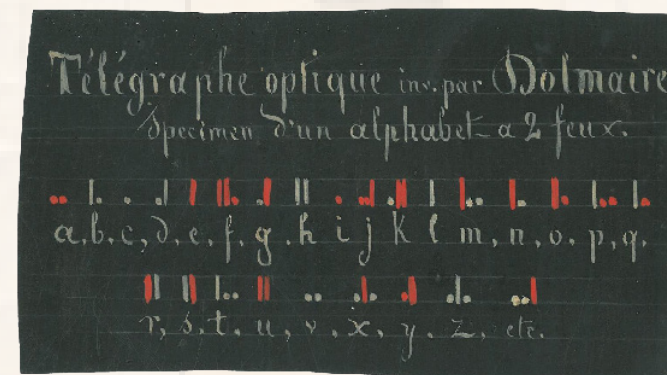 Télégraphe optique inv. par Dolmaire
Specimen d'un alphabet a 2 feux.
a, b, c, d, e, f, g, h i j k l m, n, o, p, q,
r, s, t, u, v, x, y, z, etc.